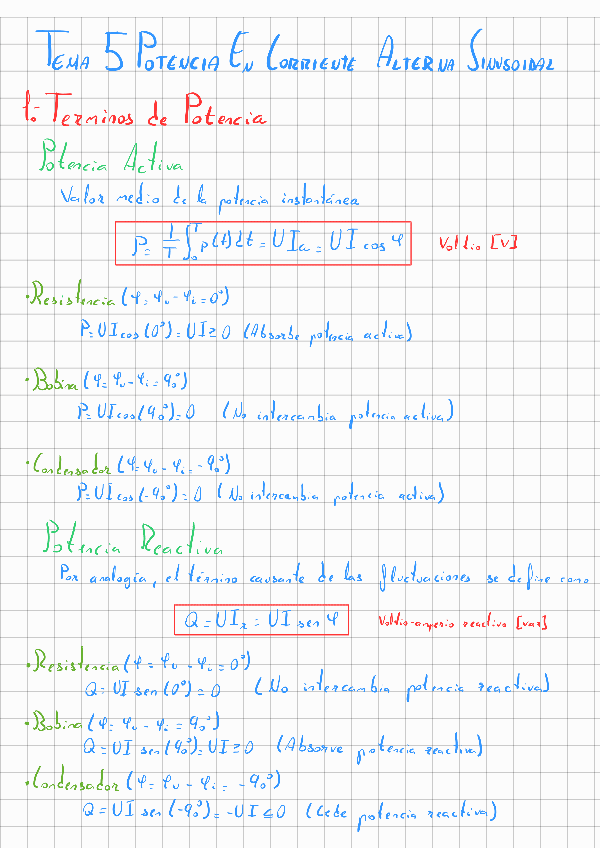 TEMA 5 POTENCIA EN CORRIENTE ALTERNA SINUSOIDAL
1.- Terminos de Potencia
Potencia Activa
Valor medio de la potencia instantánea
P = 1/T ∫₀ᵀ p(t)dt = U Iₐ = U I cos φ Voltio [V]
· Resistencia (φ = φᵤ - φᵢ = 0°)
P = UI cos (0°) = UI ≥ 0 (Absorbe potencia activa)
· Bobina (φ = φᵤ - φᵢ = 90°)
P = UI cos (90°) = 0 (No intercambia potencia activa)
· Condensador (φ = φᵤ - φᵢ = -90°)
P = UI cos (-90°) = 0 (No intercambia potencia activa)
Potencia Reactiva
Por analogía, el término causante de las fluctuaciones se define como
Q = U Iᵣ = U I sen φ Voltio-amperio reactivo [var]
· Resistencia (φ = φᵤ - φᵢ = 0°)
Q = UI sen (0°) = 0 (No intercambia potencia reactiva)
· Bobina (φ = φᵤ - φᵢ = 90°)
Q = UI sen (90°) = UI ≥ 0 (Absorve potencia reactiva)
· Condensador (φ = φᵤ - φᵢ = -90°)
Q = UI sen (-90°) = -UI ≤ 0 (Cede potencia reactiva)